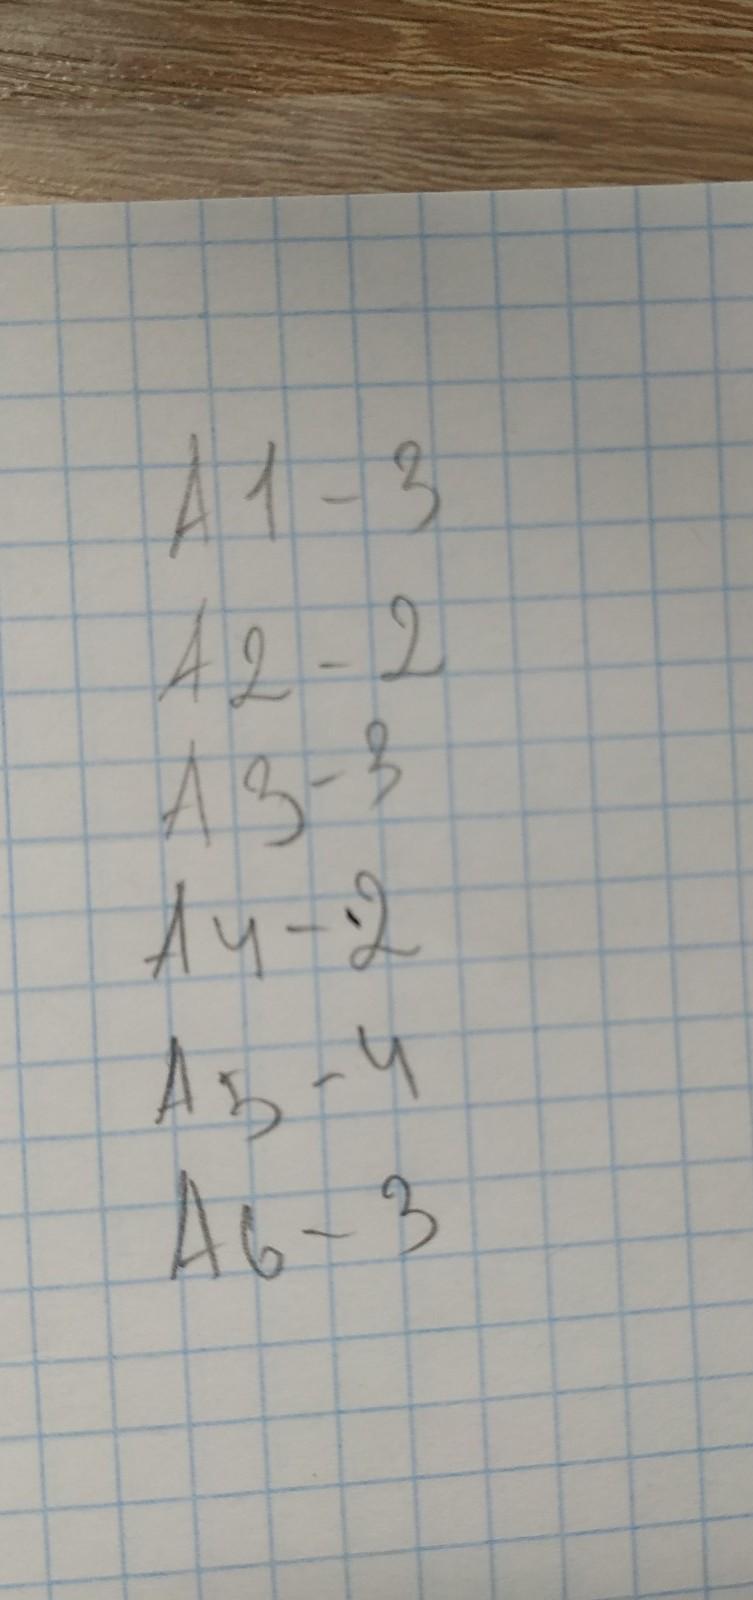 A1 - 3
A2 - 2
A3 - 3
A4 - 2
A5 - 4
A6 - 3